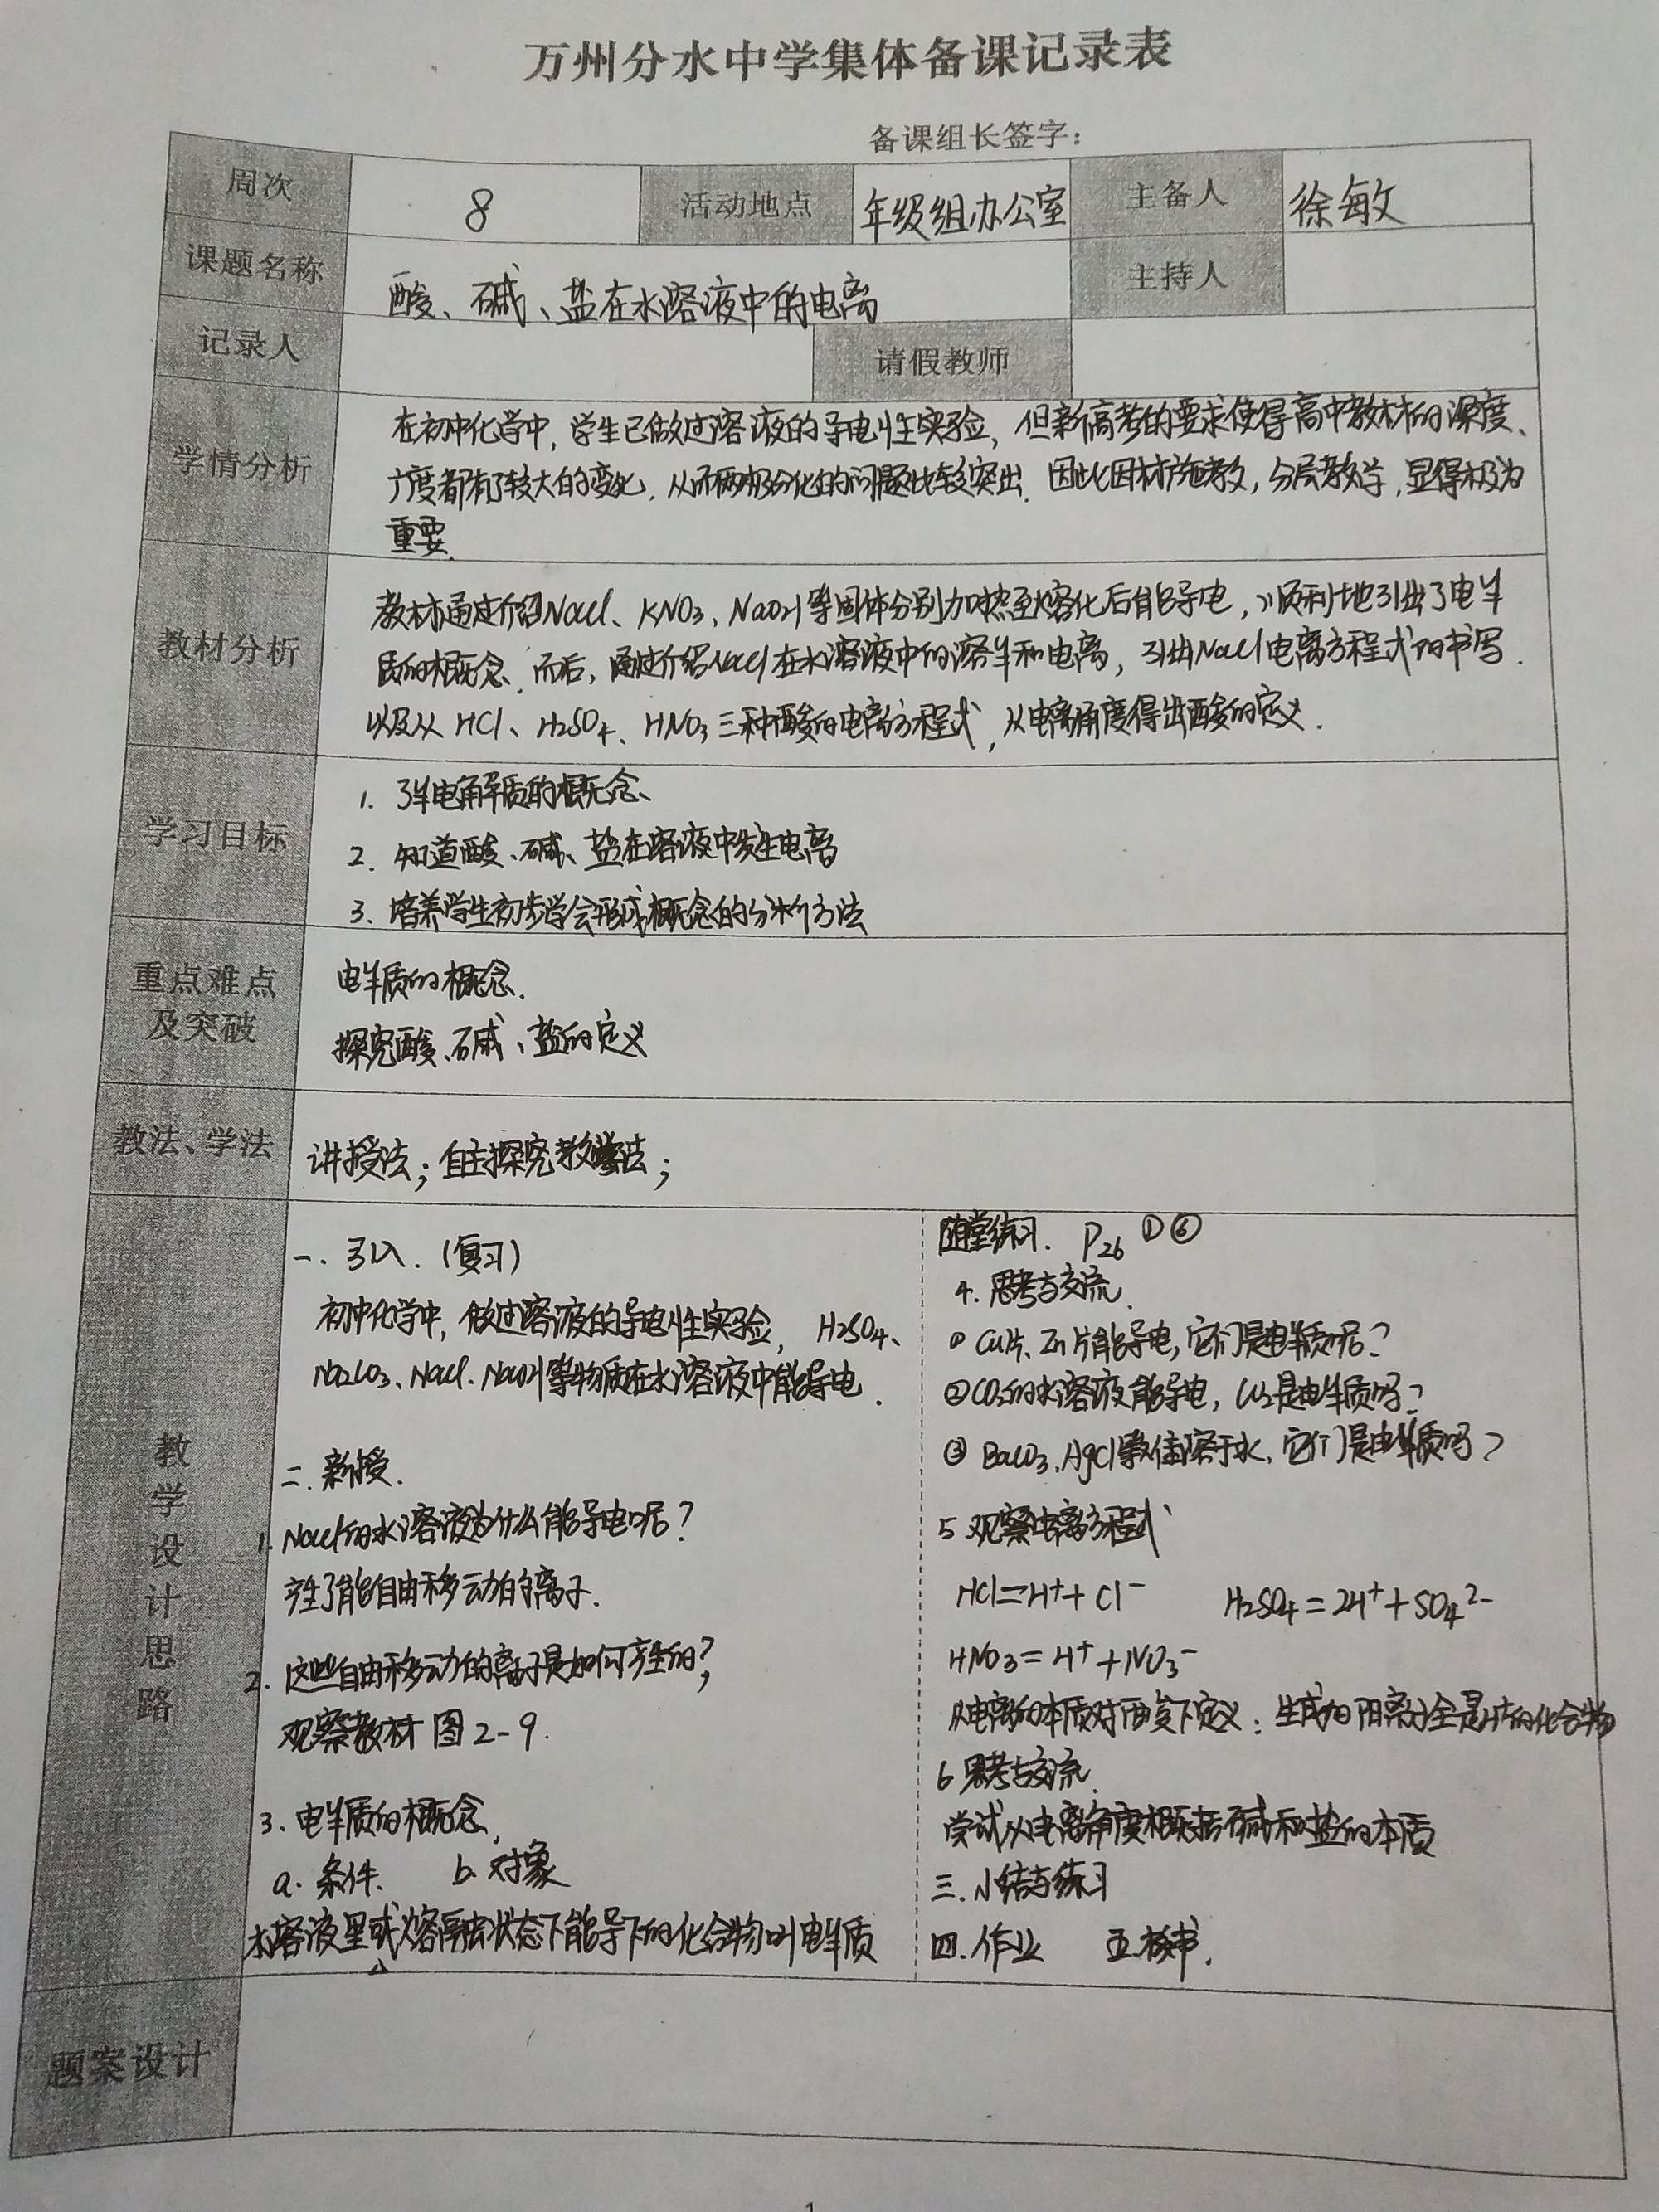 万州分水中学集体备课记录表
备课组长签字：
周次 8 活动地点 年级组办公室 主备人 徐敏
课题名称 酸、碱、盐在水溶液中的电离 主持人
记录人 请假教师
学情分析
在初中化学中，学生已做过溶液的导电性实验，但新高考的要求使得高中教材的深度、
广度都有了较大的变化，从而两极分化的问题比较突出．因此因材施教，分层教学，显得极为
重要．
教材分析
教材通过介绍NaCl、KNO3、NaOH等固体分别加热至熔化后能导电，顺利地引出了电解
质的概念．而后，通过介绍NaCl在水溶液中的溶解和电离，引出NaCl电离方程式的书写．
以及从 HCl、H2SO4、HNO3三种酸的电离方程式，从电离角度得出酸的定义．
学习目标
1. 了解电解质的概念、
2. 知道酸、碱、盐在溶液中发生电离
3. 培养学生初步学会形成概念的分析方法
重点难点
及突破
电解质的概念．
探究酸、碱、盐的定义
教法、学法
讲授法；自主探究教学法；
教学设计思路
一．引入．(复习)
初中化学中，做过溶液的导电性实验， H2SO4、
Na2CO3、NaCl、NaOH等物质在水溶液中能导电．
二．新授．
1. NaCl的水溶液为什么能导电呢？
产生了能自由移动的离子．
2. 这些自由移动的离子是如何产生的？
观察教材 图2-9.
3. 电解质的概念．
a. 条件． b. 对象
水溶液里或熔融状态下能导下的化合物叫电解质
随堂练习． P26 ①⑥
4. 思考与交流．
① Cu片、Zn片能导电，它们是电解质呢？
②CO2的水溶液能导电，CO2是电解质吗？
③ BaCO3、AgCl难溶于水，它们是电解质吗？
5 观察电离方程式
HCl=H++Cl- H2SO4=2H++SO42-
HNO3=H++NO3-
从电离的本质对酸下定义：生成的阳离子全是H+的化合物
6 思考与交流．
尝试从电离角度概括碱和盐的本质
三．小结与练习
四．作业 五．板书．
题案设计
1